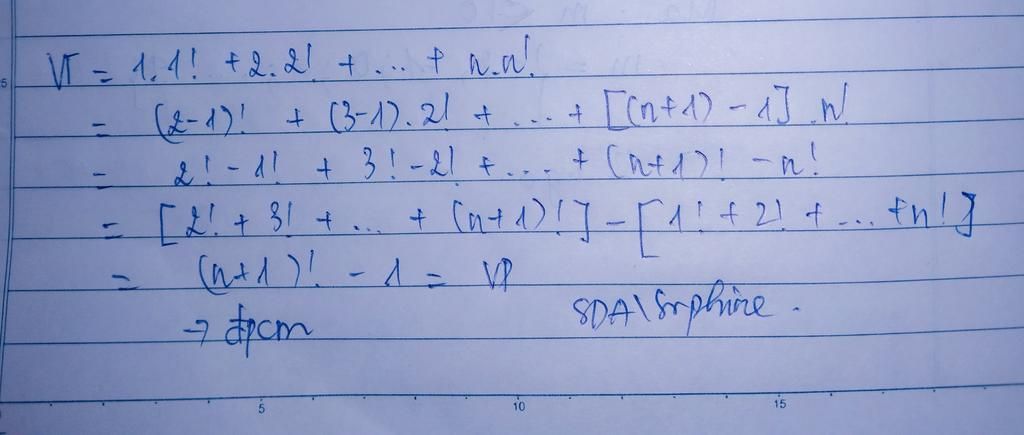 VT = 1.1! + 2.2! + ... + n.n!
= (2-1)! + (3-1).2! + ... + [(n+1) - 1].n!
= 2! - 1! + 3! - 2! + ... + (n+1)! - n!
= [2! + 3! + ... + (n+1)!] - [1! + 2! + ... + n!]
= (n+1)! - 1 = VP
→ đpcm
5
5 10 15